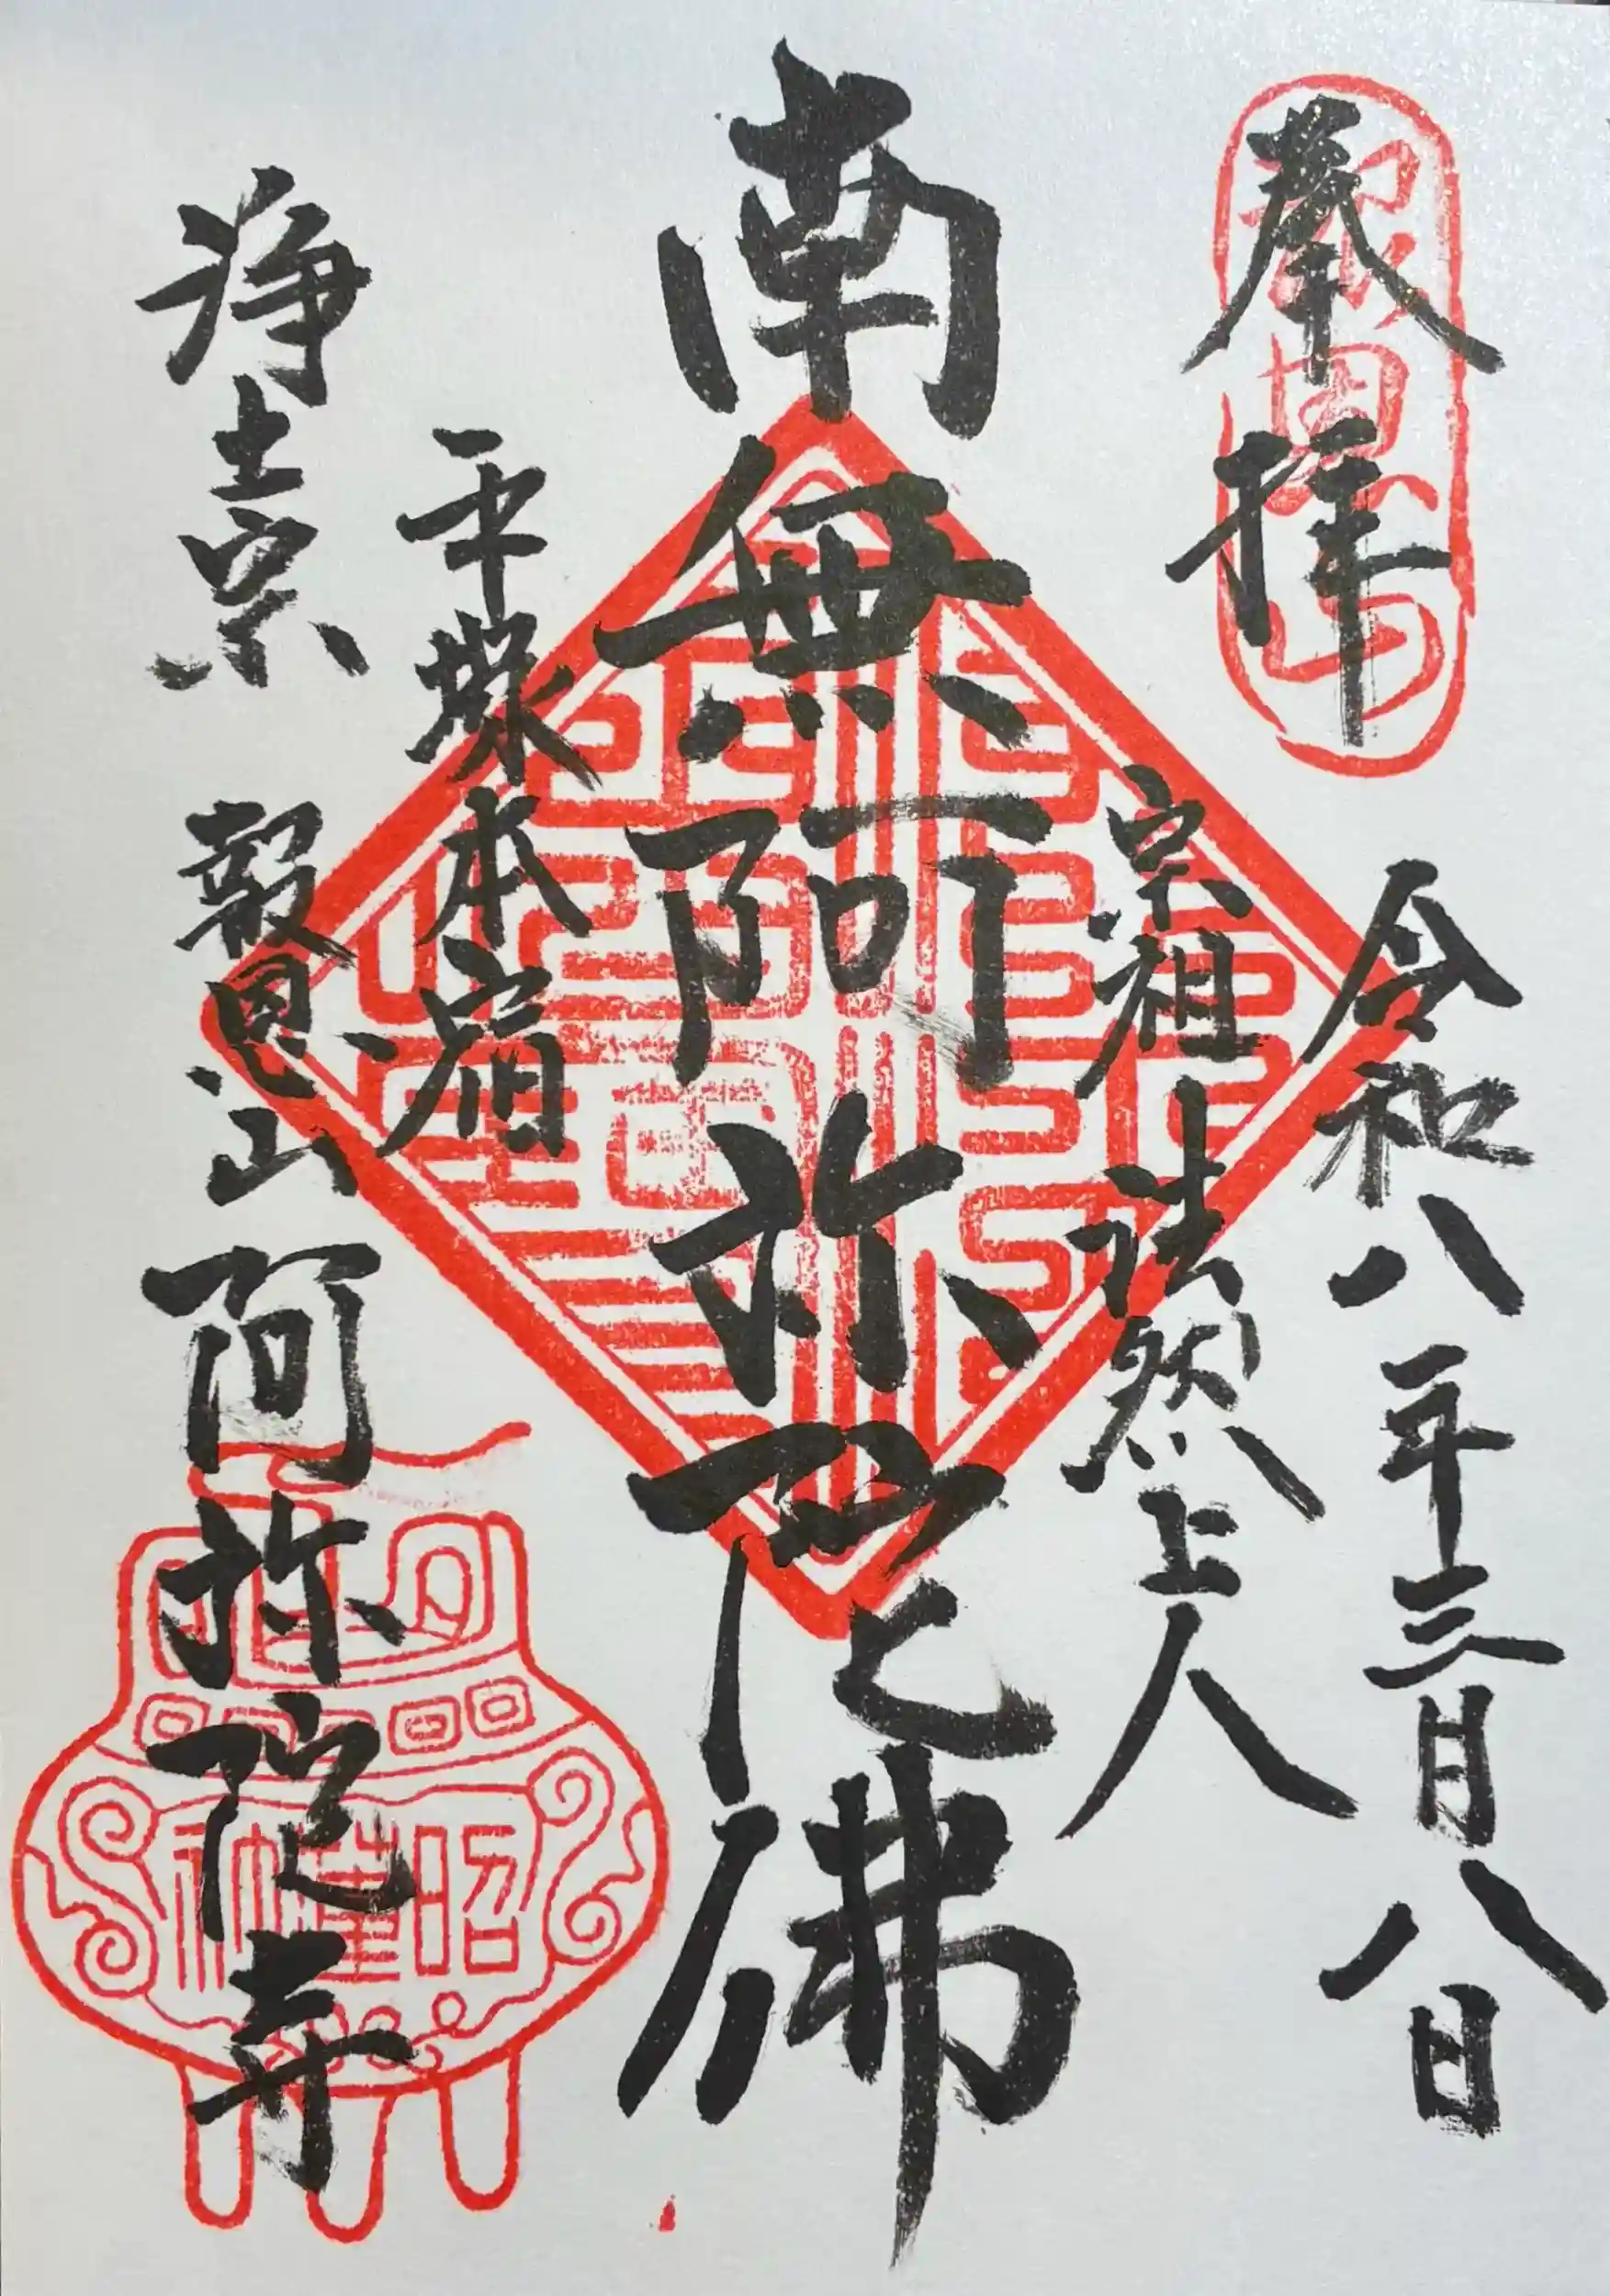 奉拝
令和八年三月八日
宗祖 法然上人
南無阿弥陀佛
平塚本宿
浄土宗 報恩山 阿弥陀寺
報恩山